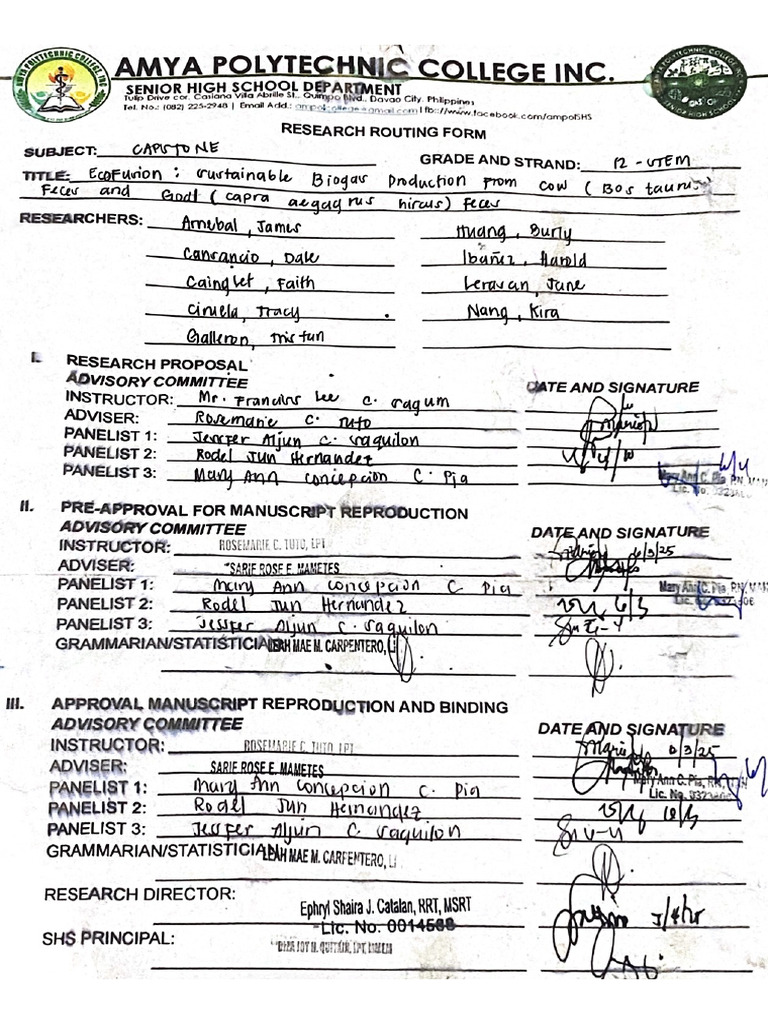 AMYA POLYTECHNIC COLLEGE INC.
SENIOR HIGH SCHOOL DEPARTMENT
Tulip Drive cor. Casiana Villa Abrille St., Quimpo Blvd., Davao City, Philippines
Tel. No.: (082) 225-2948 | Email Add.: ampolcollege@gmail.com | fb://www.facebook.com/ampolSHS
RESEARCH ROUTING FORM
SUBJECT: CAPSTONE GRADE AND STRAND: 12 - STEM
TITLE: EcoFusion: Sustainable Biogas Production From Cow (Bos taurus)
Feces and Goat (capra aegagrus hircus) Feces
RESEARCHERS: Arnebal, James Huang, Surly
Cansancio, Dale Ibañez, Harold
Cainglet, Faith Lerasan, June
Ciruela, Tracy Nang, Kira
Galleron, Tristan
I. RESEARCH PROPOSAL
ADVISORY COMMITTEE DATE AND SIGNATURE
INSTRUCTOR: Mr. Francins Lee C. Sagum
ADVISER: Rosemarie C. Tuto
PANELIST 1: Jessfer Aljun C. Saquilon
PANELIST 2: Rodel Jun Hernandez
PANELIST 3: Mary Ann Concepcion C. Pia Mary Ann C. Pia, RN, MAN
Lic. No.
II. PRE-APPROVAL FOR MANUSCRIPT REPRODUCTION
ADVISORY COMMITTEE DATE AND SIGNATURE
INSTRUCTOR: ROSEMARIE C. TUTO, LPT 6/3/25
ADVISER: SARIE ROSE E. MAMETES
PANELIST 1: Mary Ann Concepcion C. Pia Mary Ann C. Pia, RN, MAN
PANELIST 2: Rodel Jun Hernandez 6/3 Lic. No.
PANELIST 3: Jessfer Aljun C. Saquilon
GRAMMARIAN/STATISTICIAN: LEAH MAE M. CARPENTERO, L
III. APPROVAL MANUSCRIPT REPRODUCTION AND BINDING
ADVISORY COMMITTEE DATE AND SIGNATURE
INSTRUCTOR: ROSEMARIE C. TUTO, LPT 6/3/25
ADVISER: SARIE ROSE E. MAMETES
PANELIST 1: Mary Ann Concepcion C. Pia Mary Ann C. Pia, RN, MAN
Lic. No.
PANELIST 2: Rodel Jun Hernandez 6/3
PANELIST 3: Jessfer Aljun C. Saquilon
GRAMMARIAN/STATISTICIAN: LEAH MAE M. CARPENTERO, L
RESEARCH DIRECTOR: Ephryl Shaira J. Catalan, RRT, MSRT
Lic. No. 0014568
SHS PRINCIPAL: